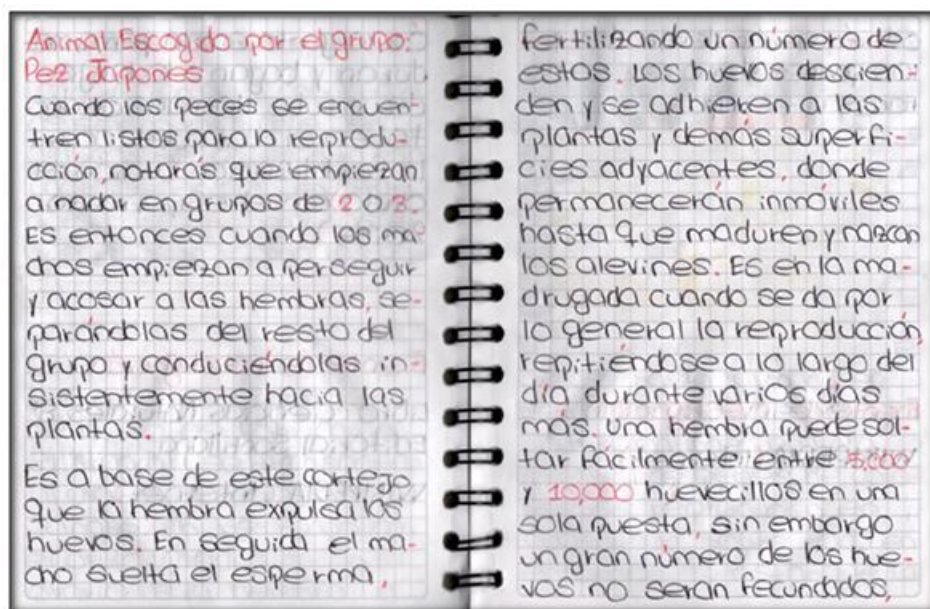 Animal Escogido por el grupo:
Pez Japones
Cuando los peces se encuen-
tren listos para la reprodu-
cción, notarás que empiezan
a nadar en grupos de 2 o 3.
Es entonces cuando los ma-
chos empiezan a perseguir
y acosar a las hembras, se-
parándolas del resto del
grupo y conduciéndolas in-
sistentemente hacia las
plantas.
Es a base de este cortejo
que la hembra expulsa los
huevos. En seguida el ma-
cho suelta el esperma,
fertilizando un número de
estos. Los huevos descien-
den y se adhieren a las
plantas y demás superfi-
cies adyacentes, dónde
permanecerán inmóviles
hasta que maduren y nazcan
los alevines. Es en la ma-
drugada cuando se da por
lo general la reproducción,
repitiéndose a lo largo del
día durante varios días
más. Una hembra puede sol-
tar fácilmente entre 5,000
y 10,000 huevecillos en una
sola puesta, sin embargo
un gran número de los hue-
vos no seran fecundados,